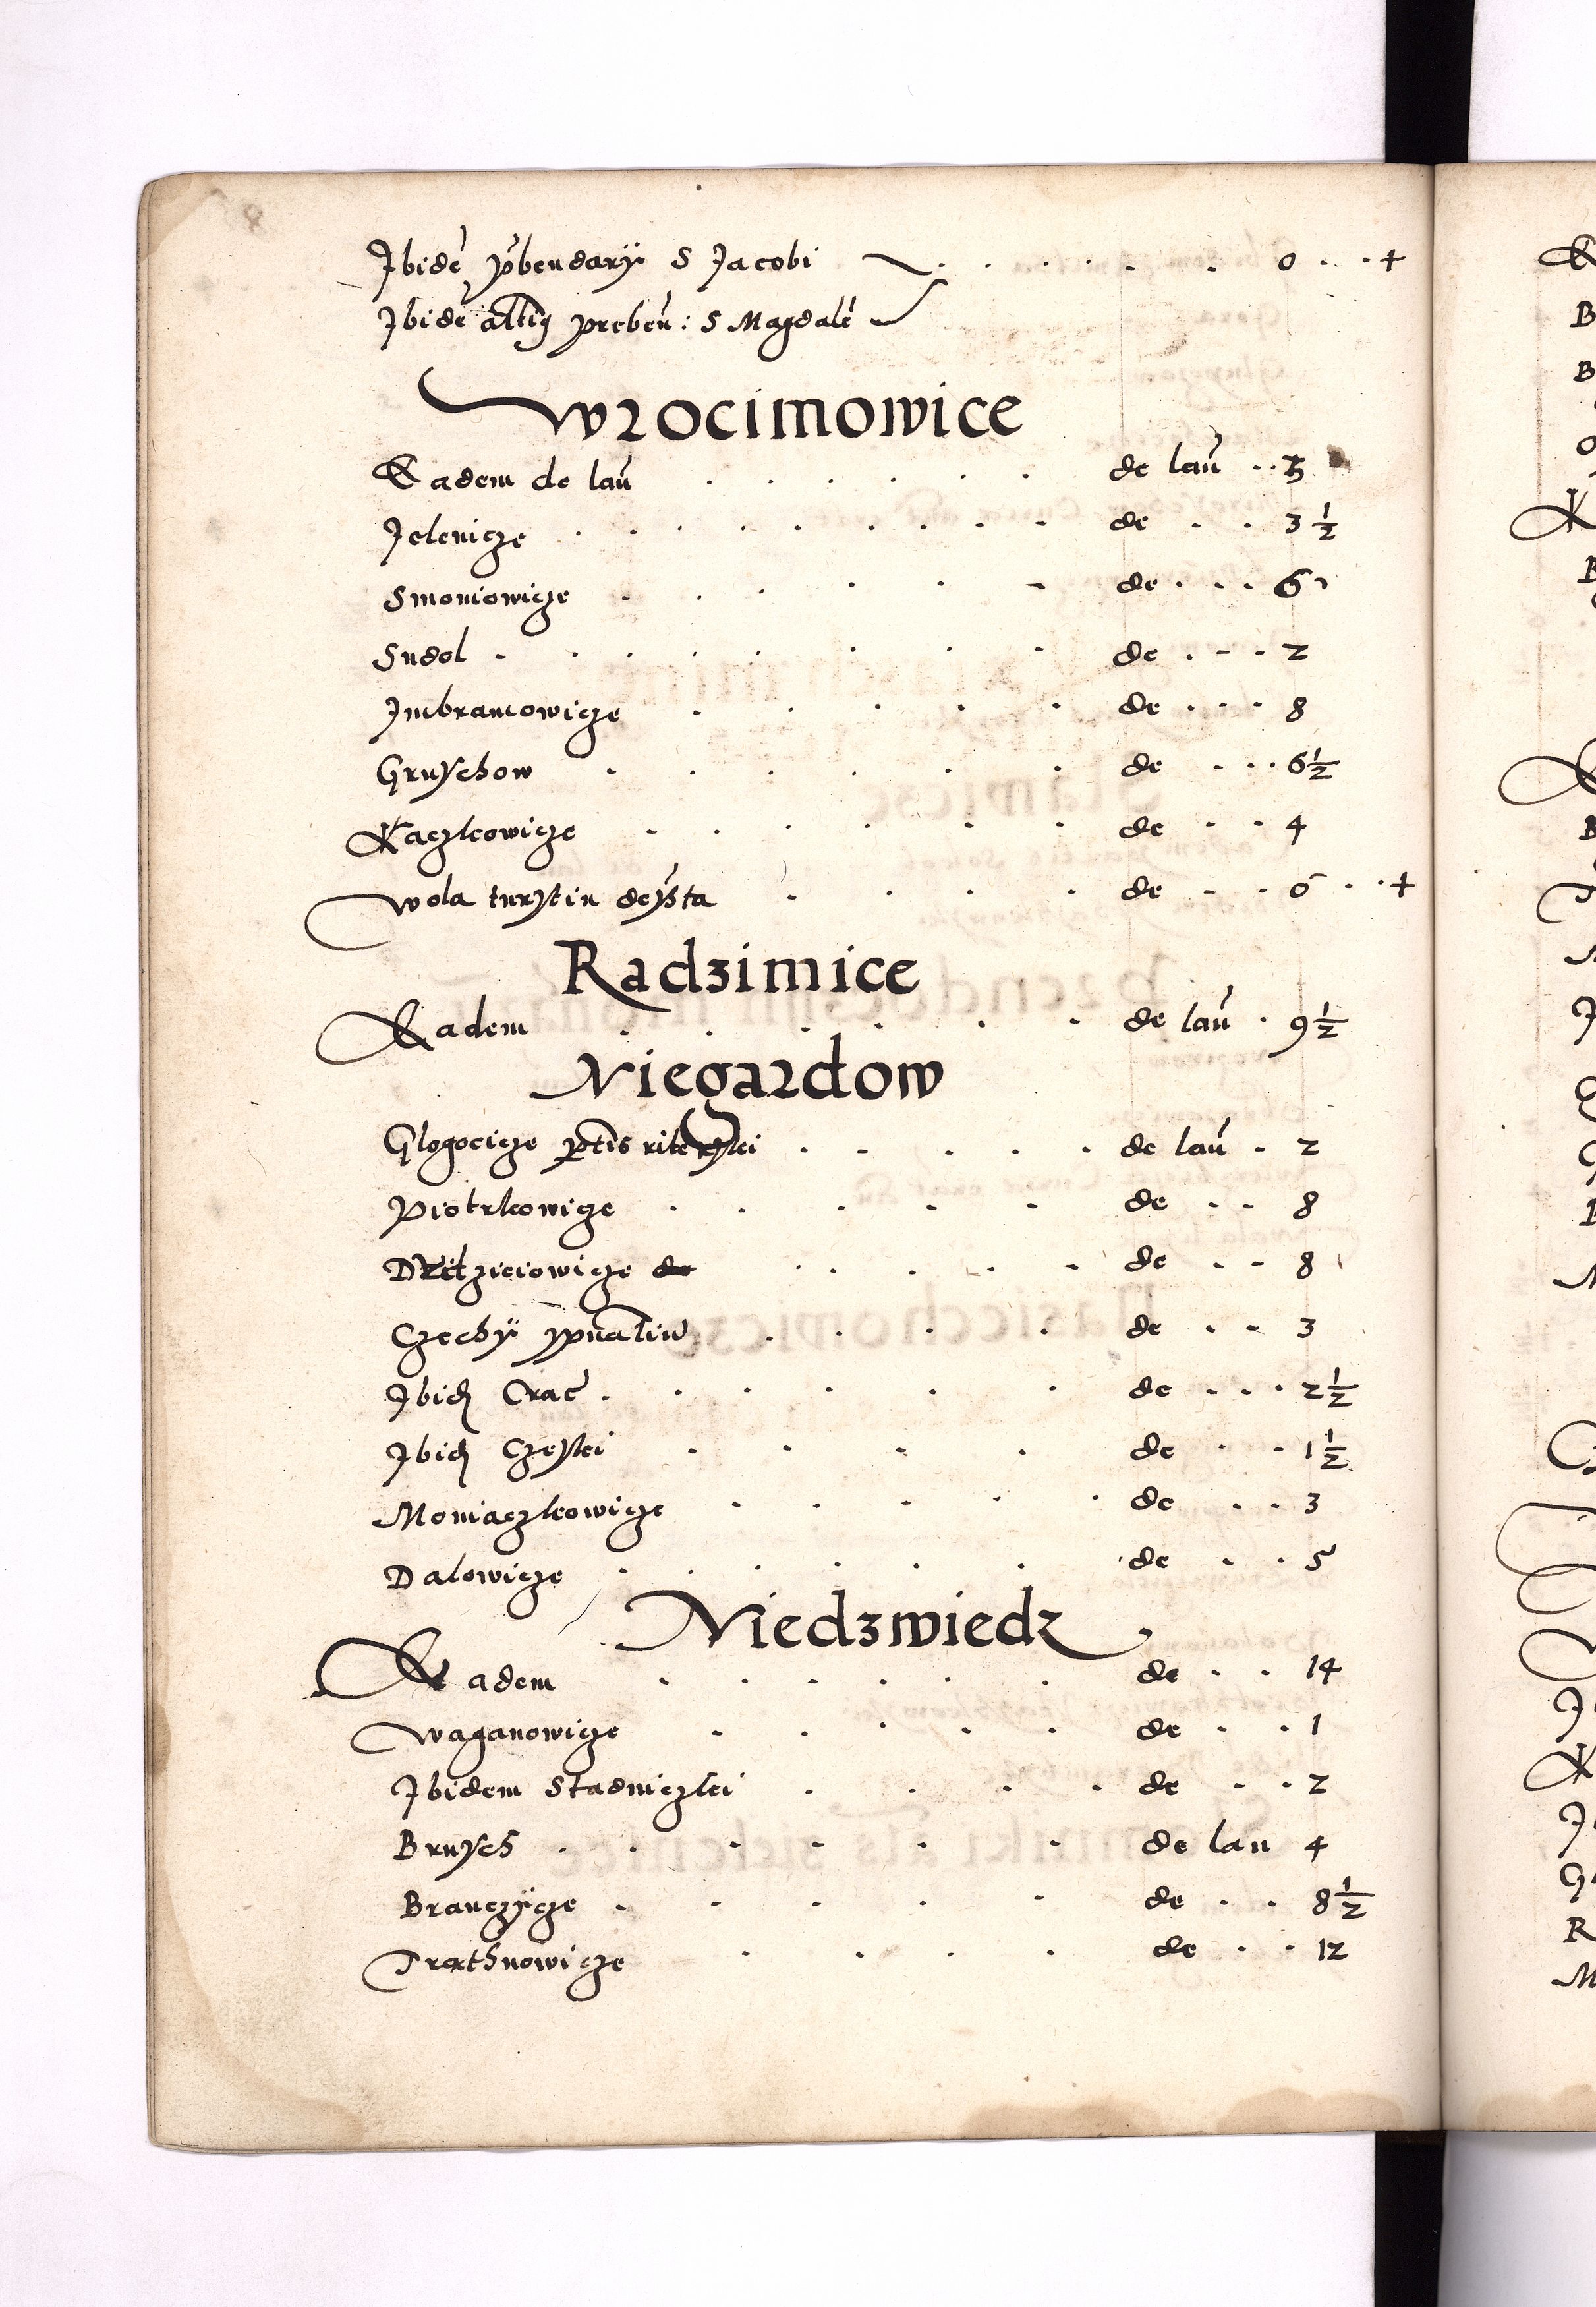 Ibidē p̄bendarÿ S Jacobi . . . . . 0 . . +
Ibidē altiꝰ prebeñ: S Magdalē
Wrocimowice
Eadem de lañ . . . . . . de lañ . . 3
Jelenicze . . . . . . . . de . . 3 ½
Smoniowicze . . . . . . de . . . 6
Sudol . . . . . . . . de . . . 2
Imbramowicze . . . . . de . . . 8
Gruschow . . . . . . de . . . 6½
Kaczkowicze . . . . . . de . . 4
Wola . . . . de . . 0 . . +
Radzimice
Eadem . . . . . . de lañ . 9½
Niegardow
Glogocicze ptis . . . . . de lañ . 2
Piotrkowicze . . . . . de . . 8
. . . . . de . . 8
Czechÿ . . . . de . . 3
Ibidē Crac̄ . . . . . . de . . . 2½
Ibidē Czeski . . . . de . . 1½
Moniaczkowicze . . . . . de . . 3
Dalowicze . . . . . . de . . 5
Niedzwiedz
Eadem . . . . . . de . . 14
Waganowicze . . . . . de . . 1
Ibidem Stadniczki . . . . de . . 2
Brusch . . . . . . de lan 4
Branczÿcze . . . . . de . . 8½
Trathnowicze . . . . de . . 12
E
B
B